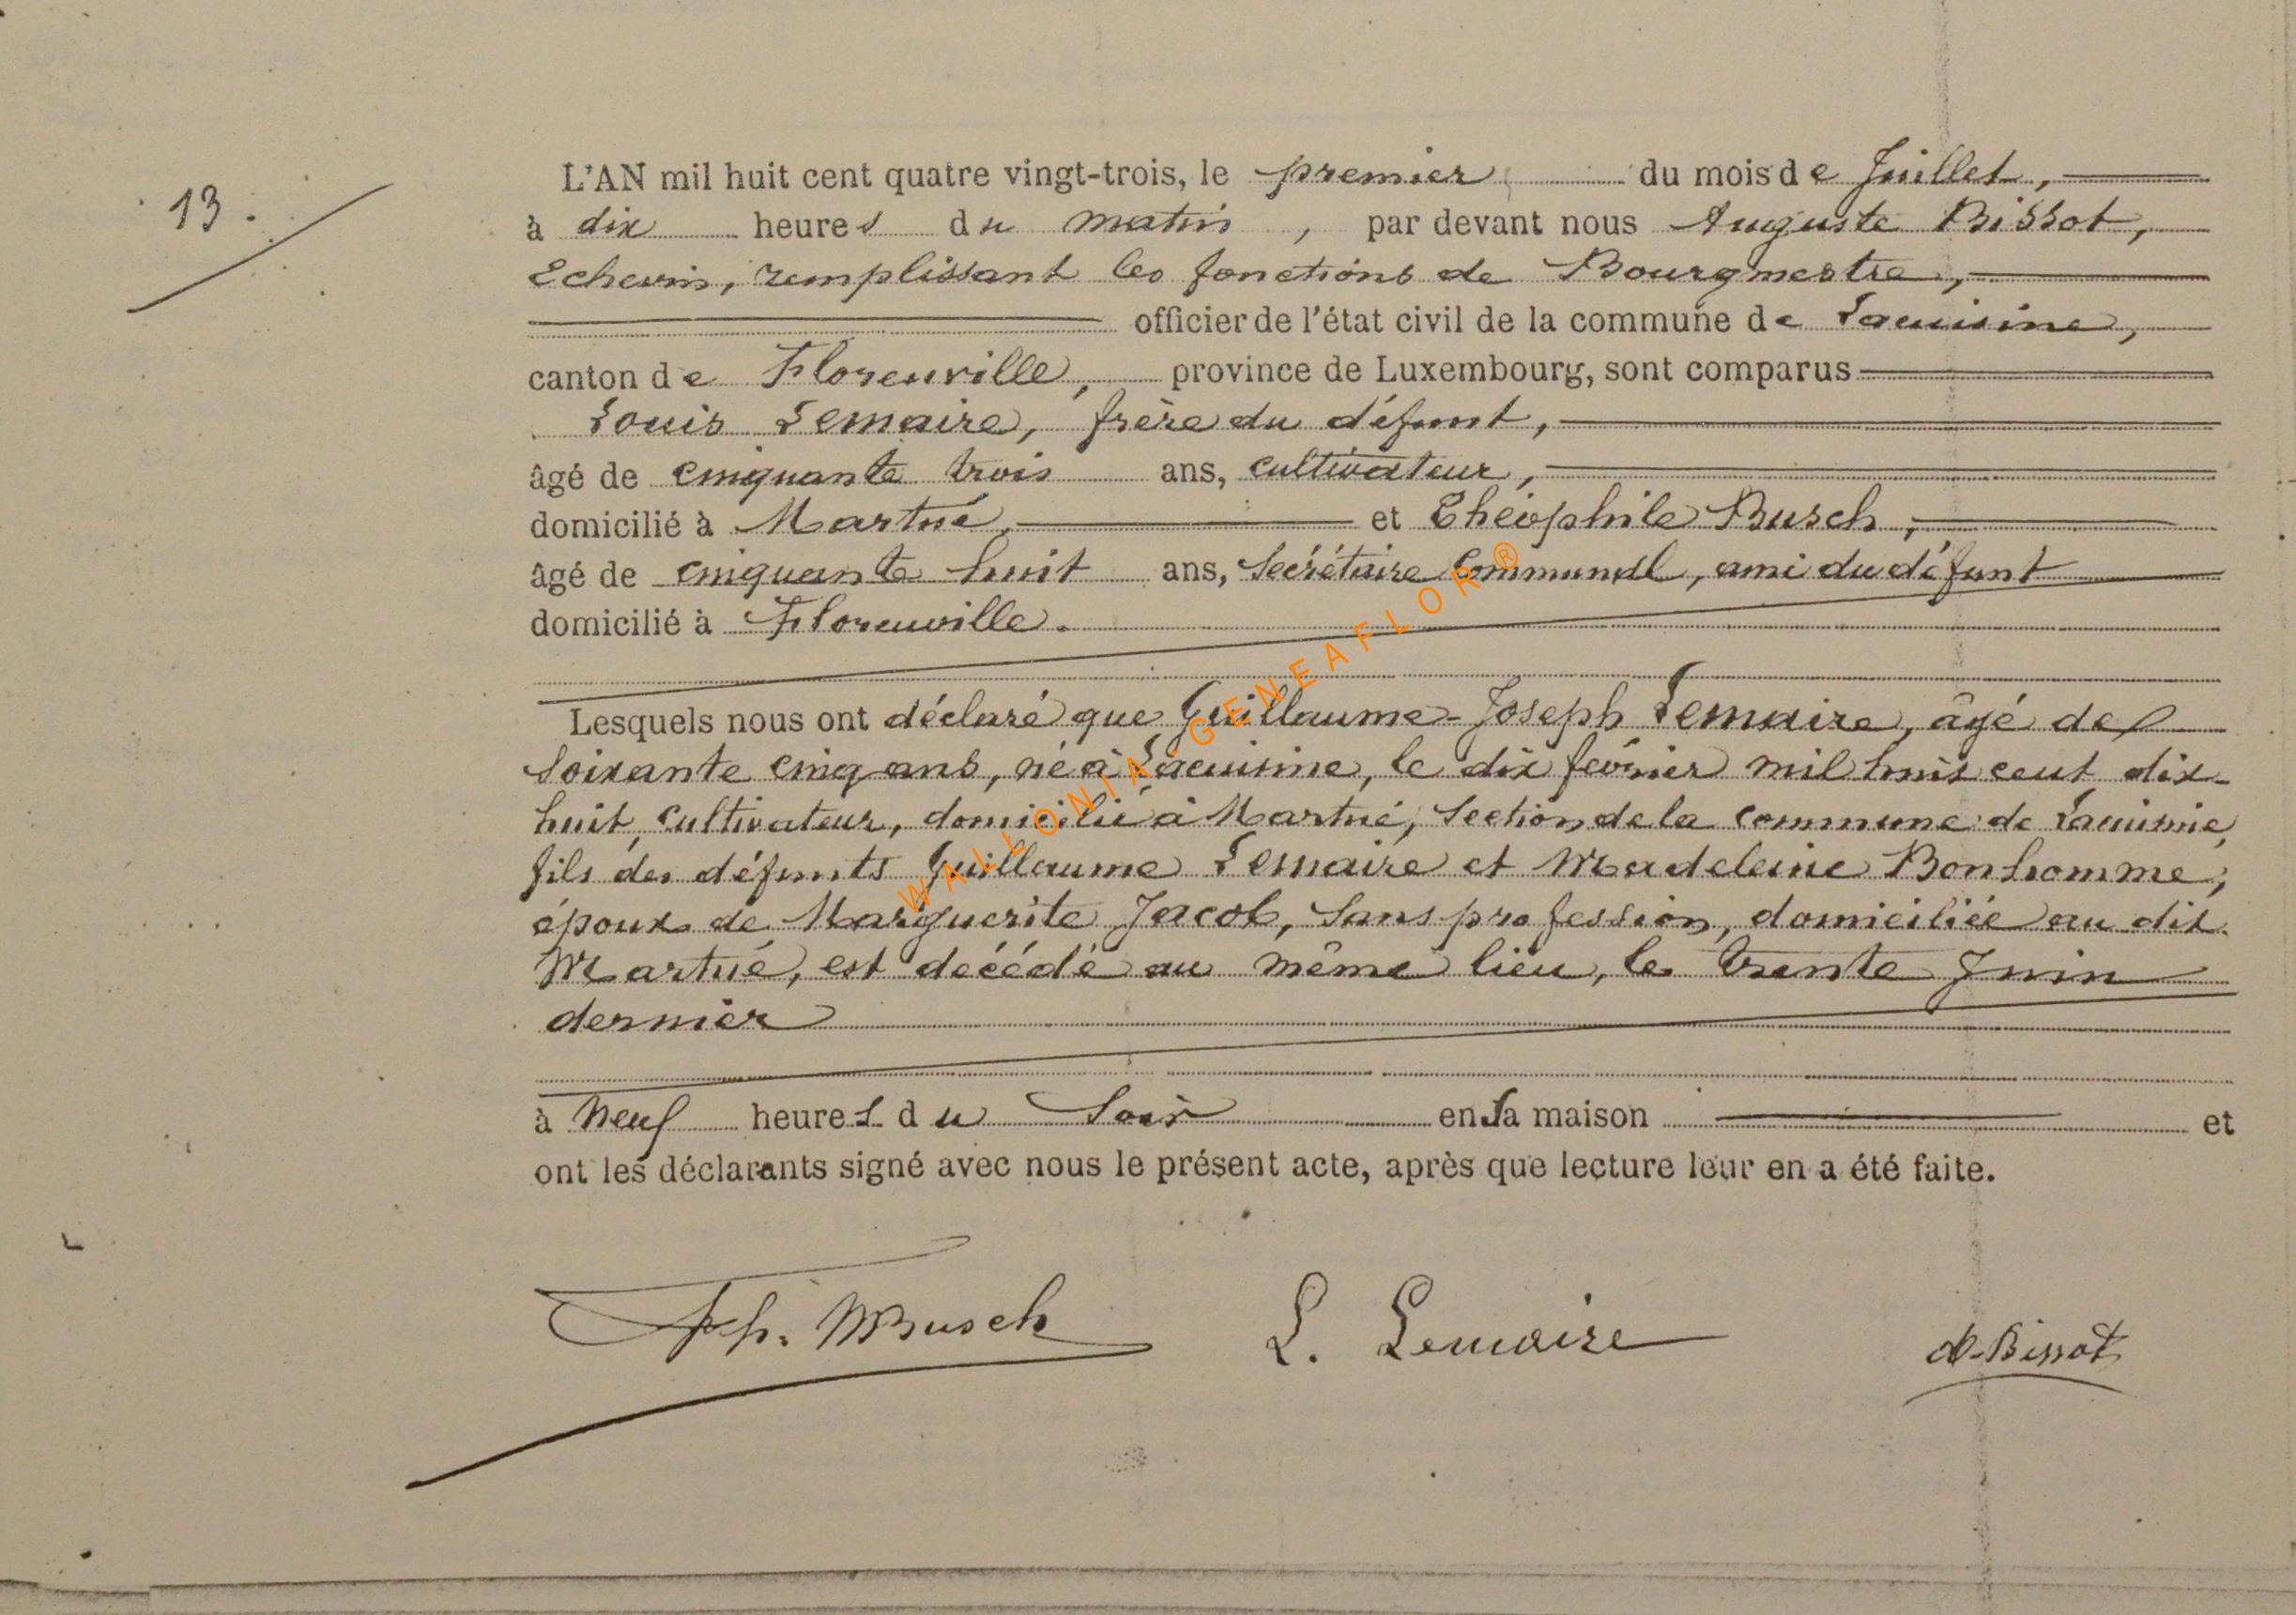 13.
L'AN mil huit cent quatre vingt-trois, le premier du mois de Juillet,
à dix heures du matin, par devant nous Auguste Bissot,
Echevin, remplissant les fonctions de Bourgmestre,
officier de l'état civil de la commune de Lacuisine,
canton de Florenville, province de Luxembourg, sont comparus
Louis Lemaire, frère du défunt,
âgé de cinquante trois ans, cultivateur,
domicilié à Martué, et Théophile Busch,
âgé de cinquante huit ans, Secrétaire Communal, ami du défunt
domicilié à Florenville.
Lesquels nous ont déclaré que Guillaume-Joseph Lemaire, âgé de
soixante cinq ans, né à Lacuisine, le dix février mil huit cent dix-
huit, cultivateur, domicilié à Martué, Section de la commune de Lacuisine,
fils des défunts Guillaume Lemaire et Madeleine Bonhomme,
époux de Marguerite Jacob, sans profession, domiciliée au dit
Martué, est décédé au même lieu, le trente Juin
dernier
à neuf heures du soir en sa maison et
ont les déclarants signé avec nous le présent acte, après que lecture leur en a été faite.
Busch L. Lemaire A. Bissot
WALLONIA-GENEAFLOR®